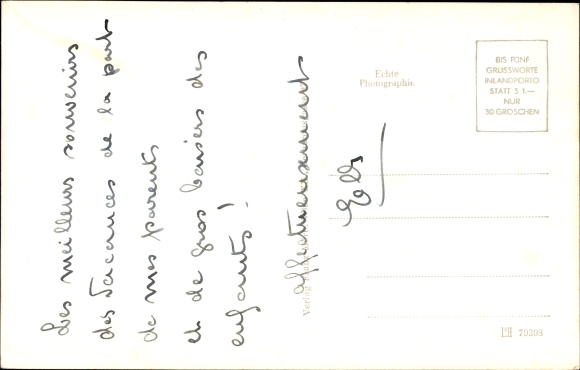 Les meilleurs souvenirs
des vacances de la part
de mes parents
et de gros baisers des
enfants !
affectueusement
Echte
Photographie
BIS FÜNF
GRUSSWORTE
INLANDPORTO
STATT S 1.—
NUR
30 GROSCHEN
Verlag
70398